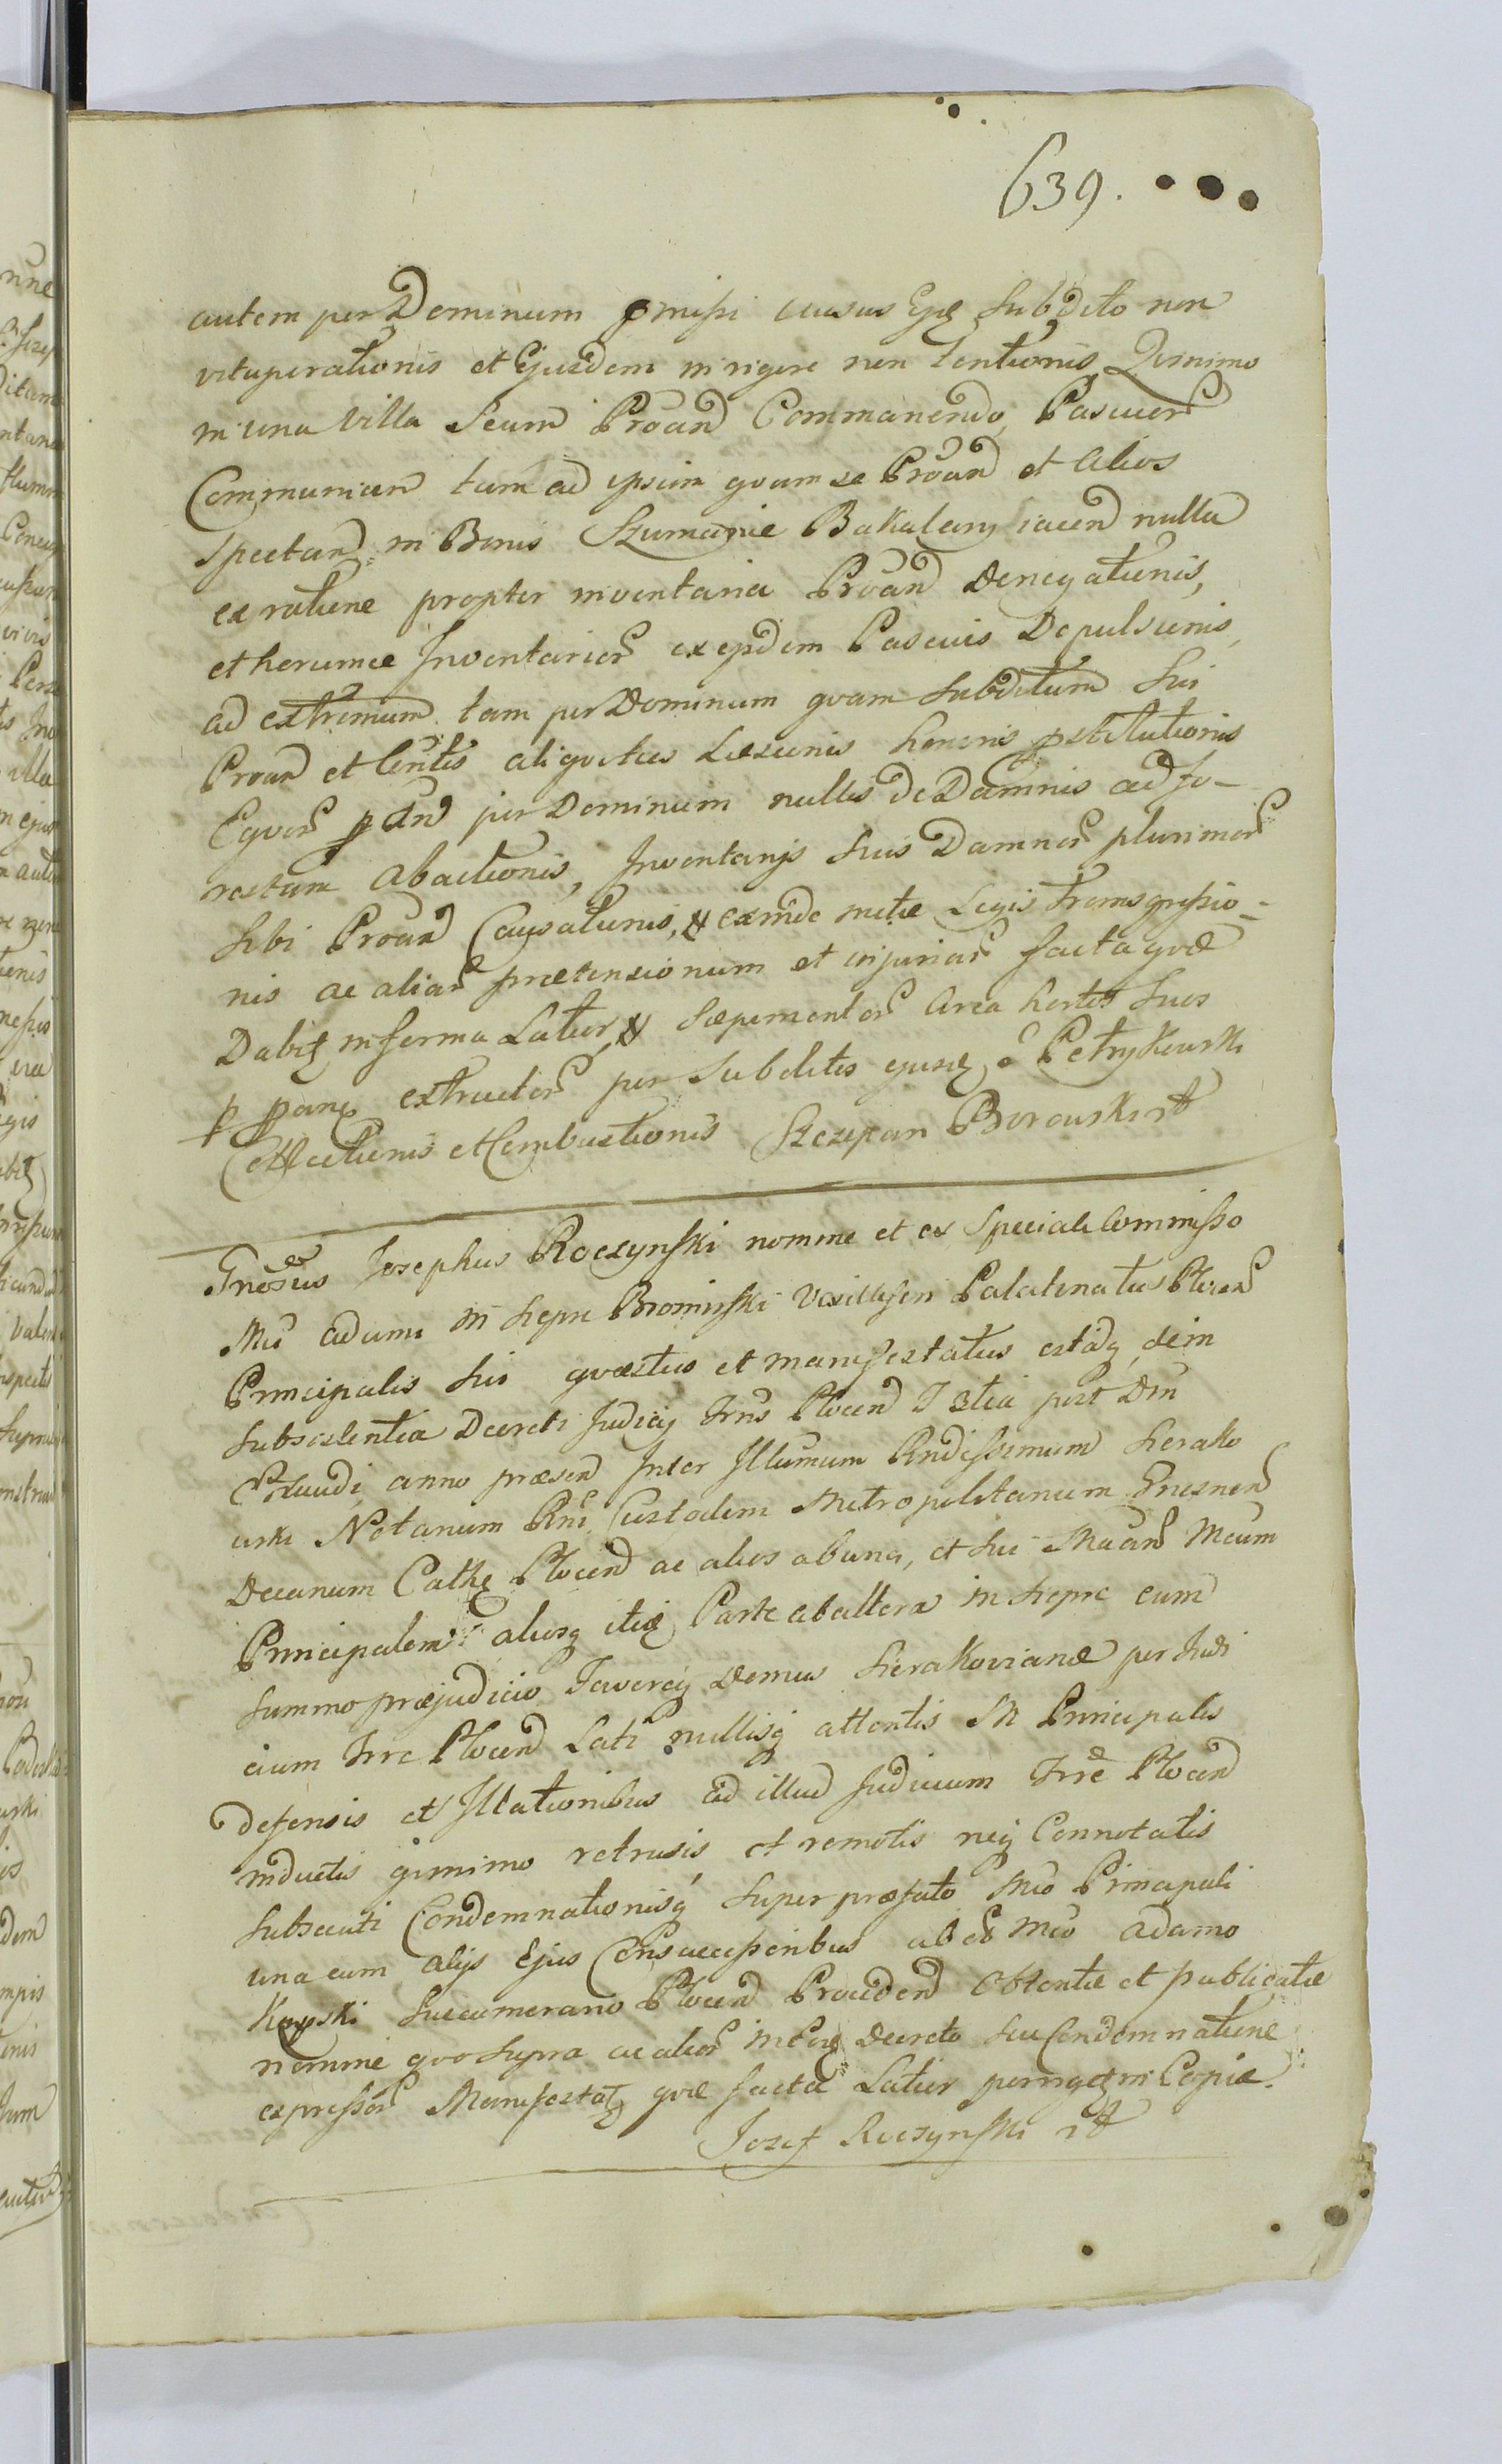 639.
autem per Dominum pmissi cursus Ejq subdito non
vituperationis et Ejusdem in rigore non tentionis, Quinimo
in una Villa Secum Proand Commanendo, Pascuor
Communium tam ad ipsum quam se Proand et alios
spectand in Bonis Szumanie Bakalary iacend nulla
ex ratione propter inventaria Proand Denegationis,
et horumce Inventarior ex ejsdem Pascuis Depulsionis,
ad extremum tam per Dominum quam subditum Sui
Proand et Contis aliquoties Læsionis honoris pstitutionis
Equor per Dominum nullis de Damnis ad fo-
restam Abactionis, Inventarijs suis Damnor plurimor
sibi Proand Causationis, & exinde metæ Legis transgressio-
nis ac aliar prætensionum et injuriar facta quæ
Dabit in forma Latior & Sæpimentor circa hortos suos
p pang extructor per subditos ejusq o Petrykowski
Collectionis et Combustionis Szczepan Borowski
Gnosus Josephus Roczynski nomine et ex Speciali Commisso
Mci Adami in Siepre Brominski Vexilliferi Palatinatus Plocen
Principalis sui quæstus et manifestatus est idq dein
subsistentia Decreti Judicij Trris Plocend F 3tia post Dm
Exaudi anno præsend Inter Illumum Rndissimum Sierako
wski Notarium Rni Custodem Metropolitanum Gnesnen
Decanum Cathq Plocend ac alios ab una, et sui Maand Mcum
Principalem aliosq itiq Parte ab altera in Siepre cum
summo præjudicio Favorej Domus Sierakovianæ per Judi
cium Trre Plocend Lati nullisq attentis M Principalis
defensis et Illationibus ad illud Judicium Trre Plocend
inductis qinimo retrusis et remotis neq Connotatis
subsecuti Condemnationisq super præfato Mco Principali
una cum alijs Ejus Consuccessoribus ab et Mco Adamo
Kępski Succamerario Plocend Proceden Obtentæ et publicatæ
nomine quo supra ac alior in Eoq Decreto seu Condemnatione
expressor Manifestat quæ facta Latior porriget in Copia.
Jozef Roczynski